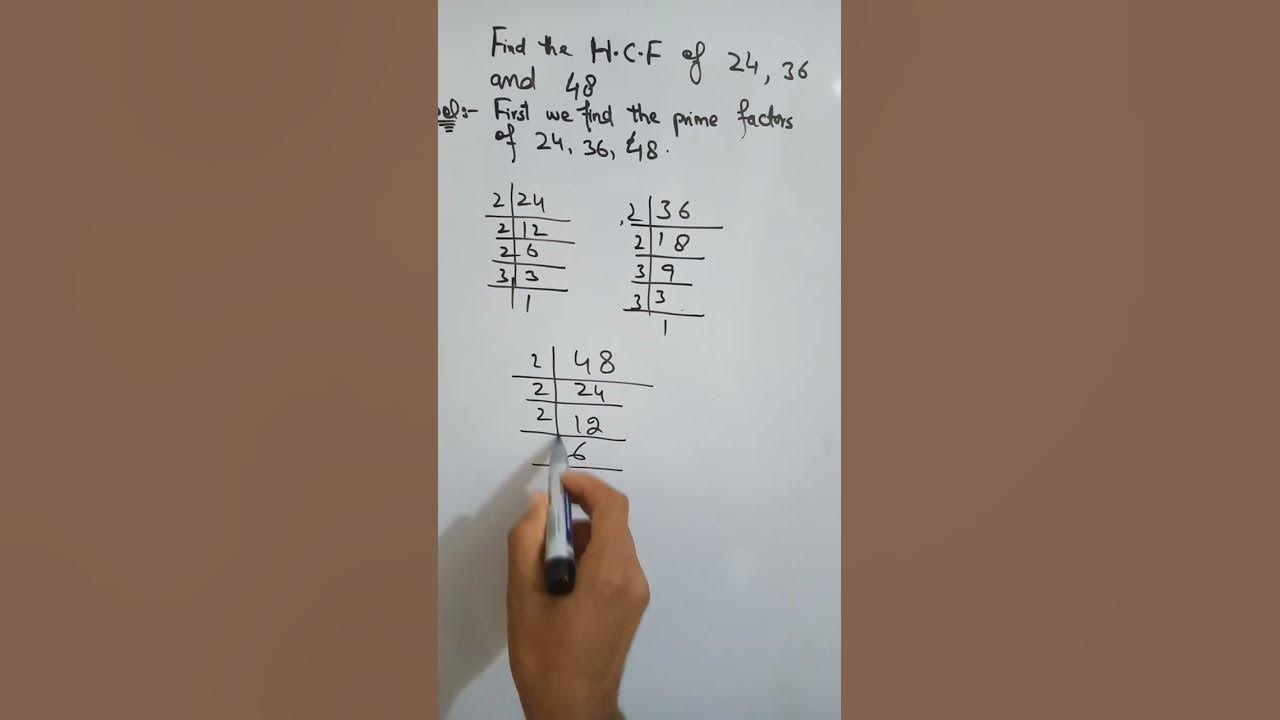 Find the H.C.F of 24, 36
and 48
Sol:- First we find the prime factors
of 24, 36, 48.
2 24
2 12
2 6
3 3
1
2 36
2 18
3 9
3 3
1
2 48
2 24
2 12
6